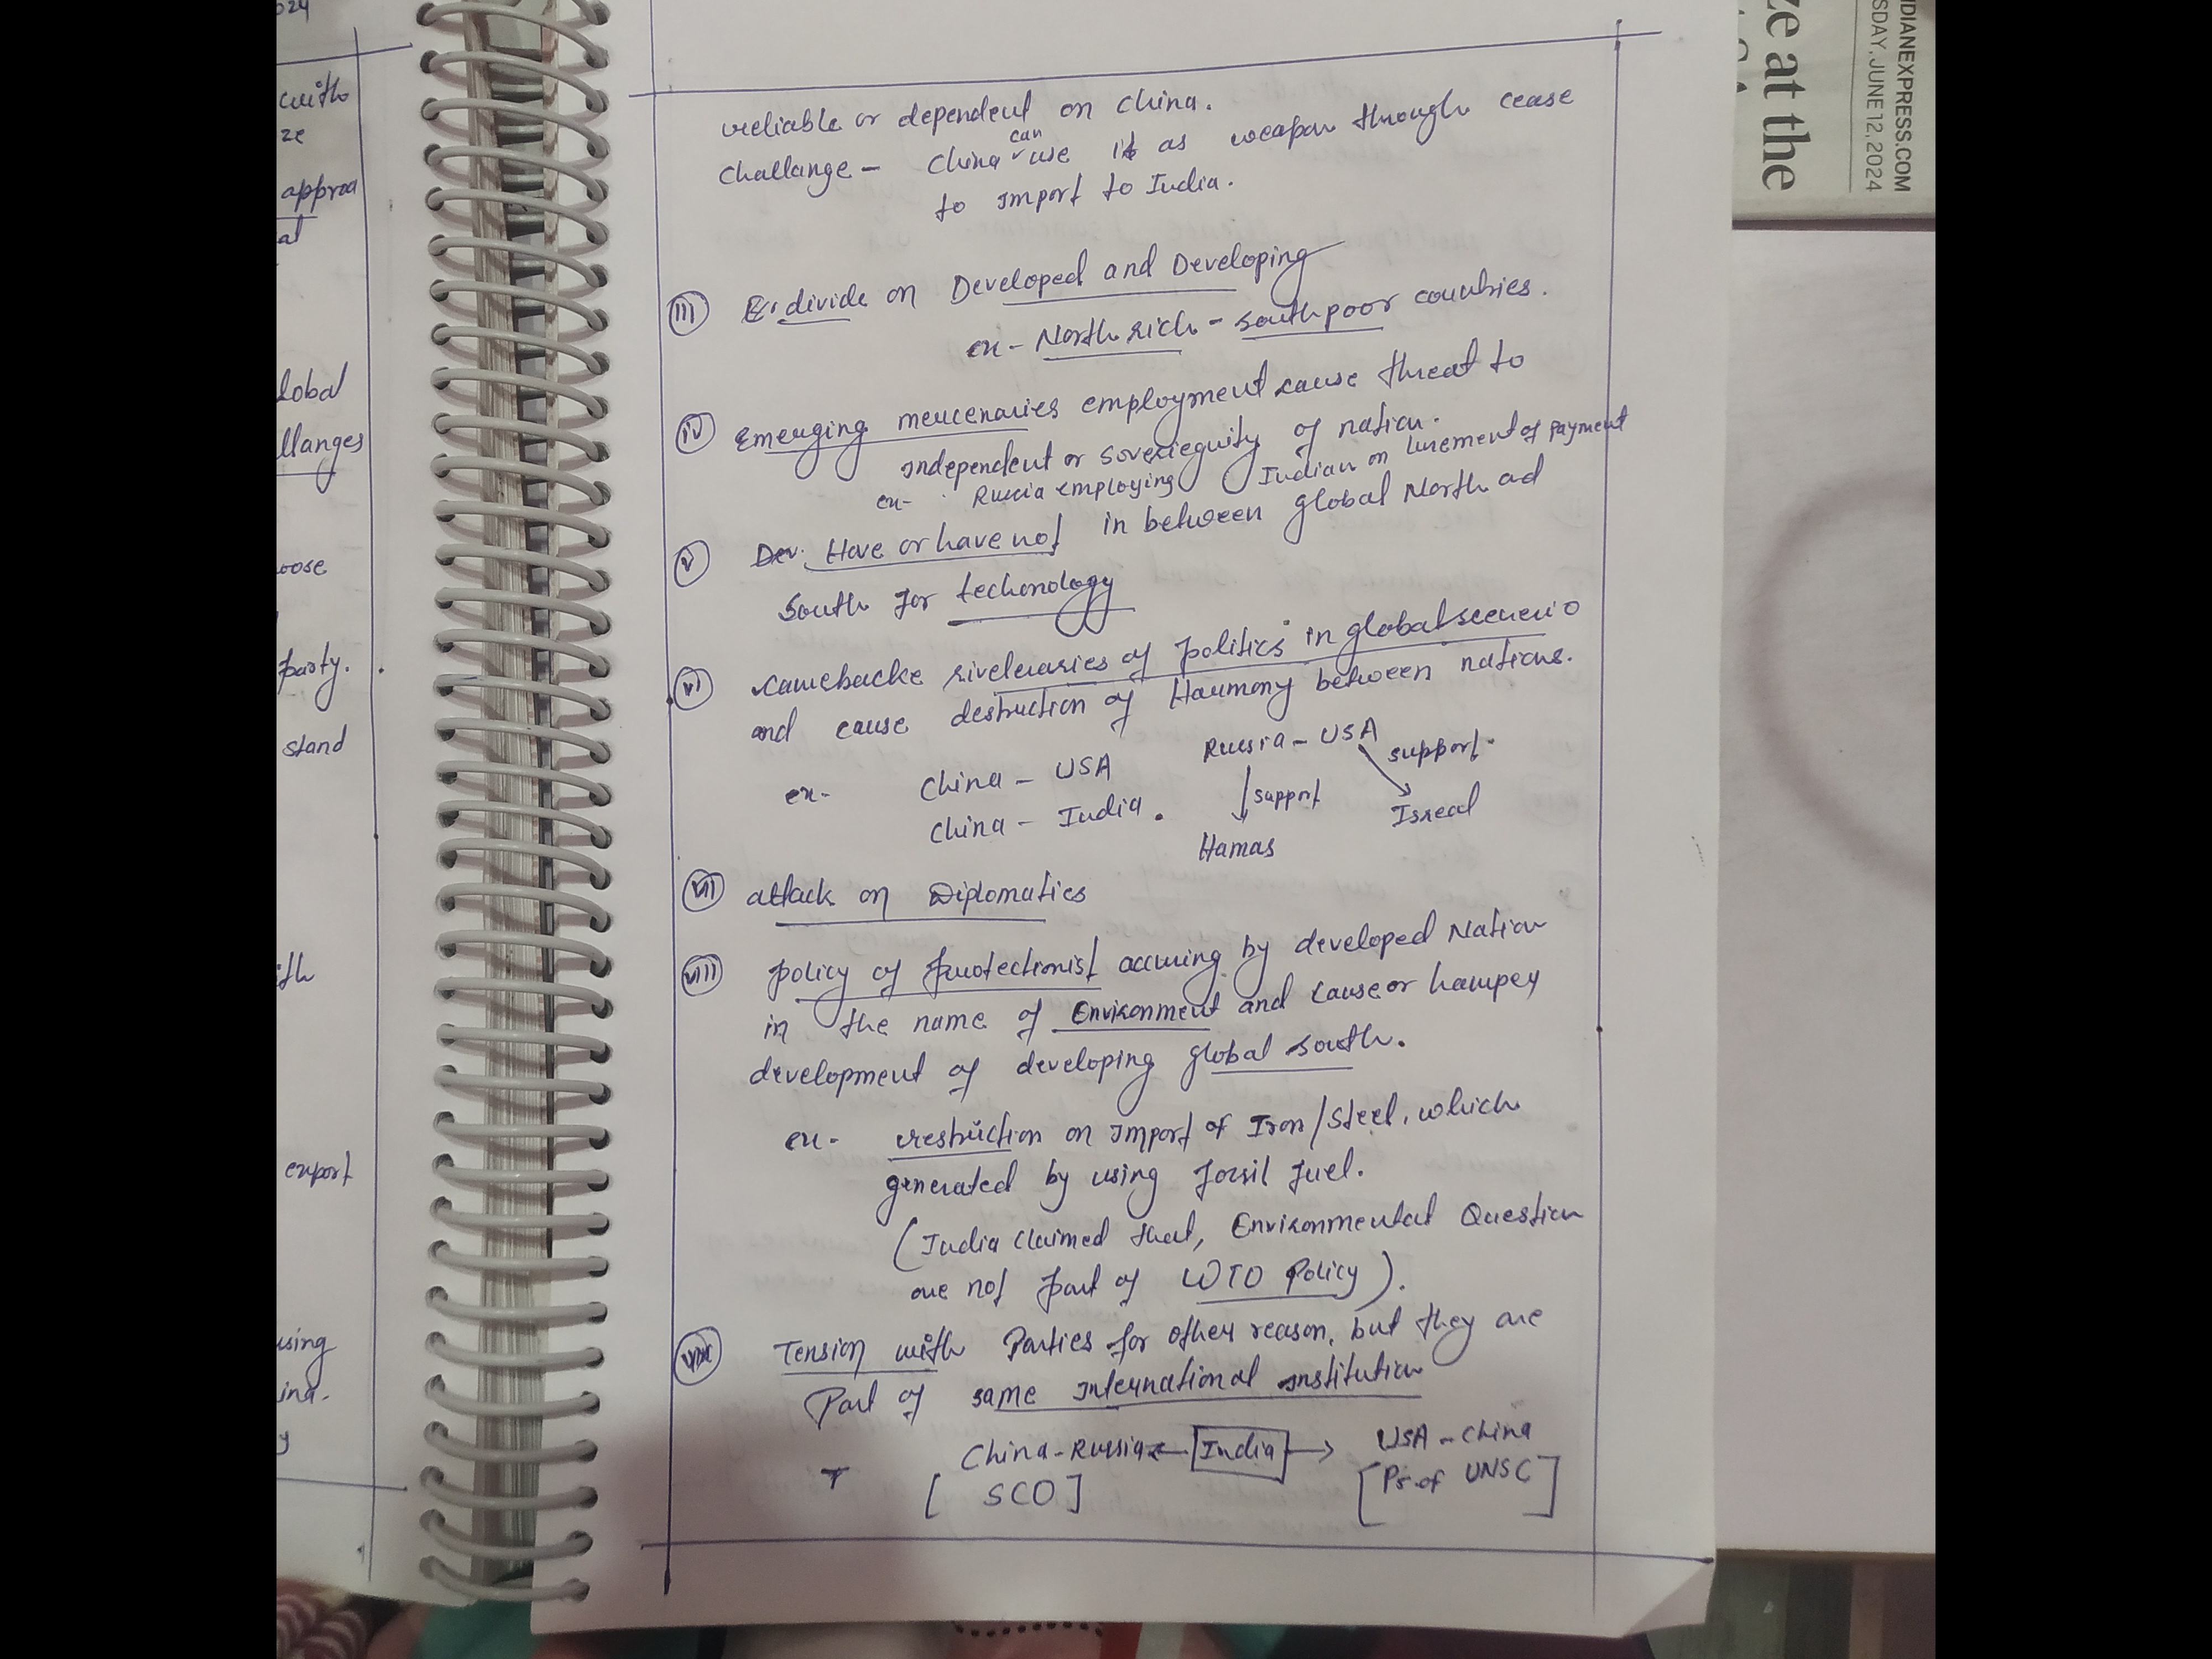 024
with
ze
approa
al
lobal
llanges
oose
party.
stand
ith
export
using
ina.
y
reliable or dependent on China.
Challange - China can use it as weapon through cease
to import to India.
(iii) divide on Developed and Developing
ex- North rich - south poor countries.
(iv) Emerging mercenaries employment cause threat to
independent or sovereignity of nation.
ex- Russia employing Indian on incement of payment
(v) Dev. Have or have not in between global North ad
South for techonology
(vi) camebacke riveleraries of politics in global scenerio
and cause destruction of Harmony between nations.
ex- China - USA Russia - USA support.
China - India. support Isreal
Hamas
(vii) attack on Diplomatics
(viii) policy of protectionist accuring by developed Nation
in the name of Environment and cause or hamper
development of developing global south.
ex- restriction on import of Iron/Steel, which
generated by using fossil fuel.
(India claimed that, Environmental Question
are not part of WTO Policy).
Tension with Parties for other reason, but they are
Part of same international institution
China-Russia India USA - China
[SCO] [P5 of UNSC]
ze at the
INDIANEXPRESS.COM
SDAY, JUNE 12, 2024